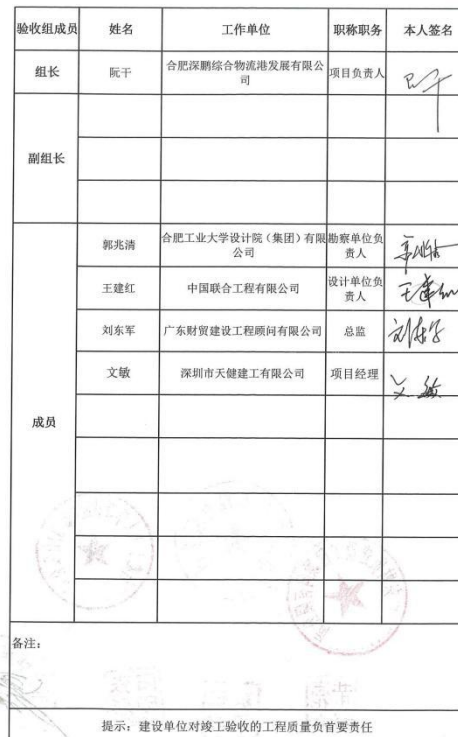 验收组成员 姓名 工作单位 职称职务 本人签名
组长 阮干 合肥深鹏综合物流港发展有限公
司 项目负责人
副组长
郭兆清 合肥工业大学设计院（集团）有限
公司 勘察单位负
责人
王建红 中国联合工程有限公司 设计单位负
责人 王建红
刘东军 广东财贸建设工程顾问有限公司 总监 刘东军
文敏 深圳市天健建工有限公司 项目经理 文敏
成员
备注：
提示：建设单位对竣工验收的工程质量负首要责任